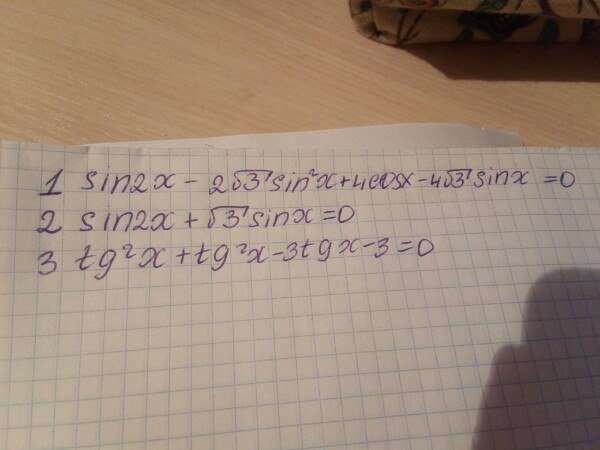 1 sin2x - 2√3 sin²x + 4cosx - 4√3 sinx = 0
2 sin2x + √3 sinx = 0
3 tg²x + tg²x - 3tgx - 3 = 0